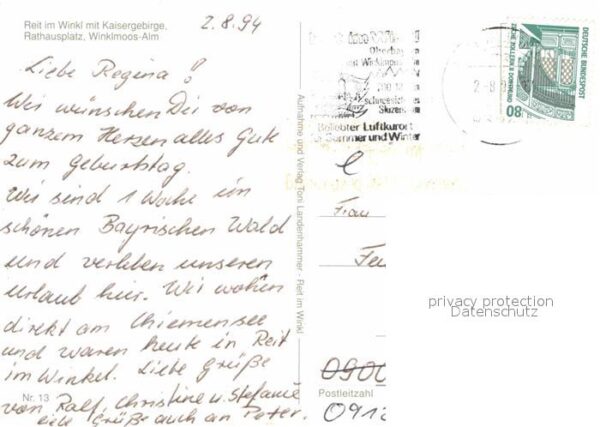 Reit im Winkl mit Kaisergebirge,
Rathausplatz, Winklmoos-Alm
2.8.94
Liebe Regina!
Wir wünschen Dir von
ganzem Herzen alles Gute
zum Geburtstag.
Wir sind 1 Woche im
schönen Bayrischen Wald
und verleben unseren
Urlaub hier. Wir wohnen
direkt am Chiemensee
und waren heute in Reit
im Winkel. Liebe Grüße
von Ralf, Christine u. Stefanie
Liebe Grüße auch an Peter.
Nr. 13
Aufnahme und Verlag Toni Landenhammer - Reit im Winkl
Oberbayern
schneesicheres
Skizentrum
Beliebter Luftkurort
für Sommer und Winter
DEUTSCHE BUNDESPOST
ZECHE ZOLLERN II DORTMUND
80
Frau
privacy protection
Datenschutz
Postleitzahl